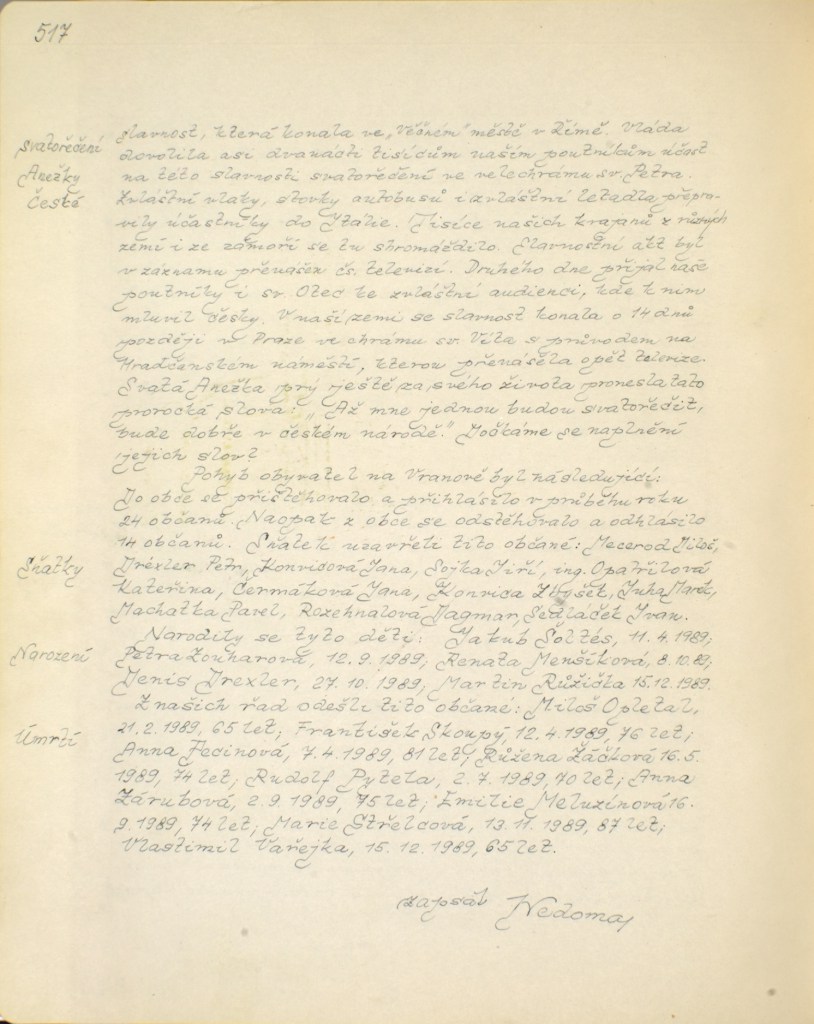 517
svatořečení
Anežky
České
slavnost, která konala ve „Věčném" městě v Římě. Vláda
dovolila asi dvanácti tisícům našim poutníkům účast
na této slavnosti svatořečení ve velechrámu sv. Petra.
Zvláštní vlaky, stovky autobusů i zvláštní letadla přepra-
vily účastníky do Itálie. Tisíce našich krajanů z různých
zemí i ze zámoří se tu shromáždilo. Slavnostní akt byl
v záznamu přenášen čs. televizí. Druhého dne přijal naše
poutníky i sv. Otec ke zvláštní audienci, kde k nim
mluvil česky. V naší zemi se slavnost konala o 14 dnů
později v Praze ve chrámu sv. Víta s průvodem na
Hradčanském náměstí, kterou přenášela opět televize.
Svatá Anežka prý ještě za svého života pronesla tato
prorocká slova: „Až mne jednou budou svatořečit,
bude dobře v českém národě." Dočkáme se naplnění
jejich slov?
Pohyb obyvatel na Vranově byl následující:
Do obce se přistěhovalo a přihlásilo v průběhu roku
24 občanů. Naopak z obce se odstěhovalo a odhlásilo
14 občanů. Sňatek uzavřeli tito občané: Mecerod Miloš,
Sňatky
Drexler Petr, Konvisová Jana, Sojka Jiří, ing. Opatřilová
Kateřina, Čermáková Jana, Konvica Zbyšek, Juha Marek,
Machatka Pavel, Rozehnalová Dagmar, Sedláček Ivan.
Narodily se tyto děti: Jakub Šoltés, 11. 4. 1989;
Narození
Petra Zouharová, 12. 9. 1989; Renata Menšíková, 8. 10. 89;
Denis Drexler, 27. 10. 1989; Martin Růžička 15. 12. 1989.
Z našich řad odešli tito občané: Miloš Opletal,
21. 2. 1989, 65 let; František Skoupý, 12. 4. 1989, 76 let;
Úmrtí
Anna Fecinová, 7. 4. 1989, 81 let; Růžena Žáčková 16. 5.
1989, 74 let; Rudolf Pytela, 2. 7. 1989, 70 let; Anna
Zárubová, 2. 9. 1989, 75 let; Emilie Meluzínová 16.
9. 1989, 74 let; Marie Střelcová, 13. 11. 1989, 87 let;
Vlastimil Vařejka, 15. 12. 1989, 65 let.
zapsal Nedoma